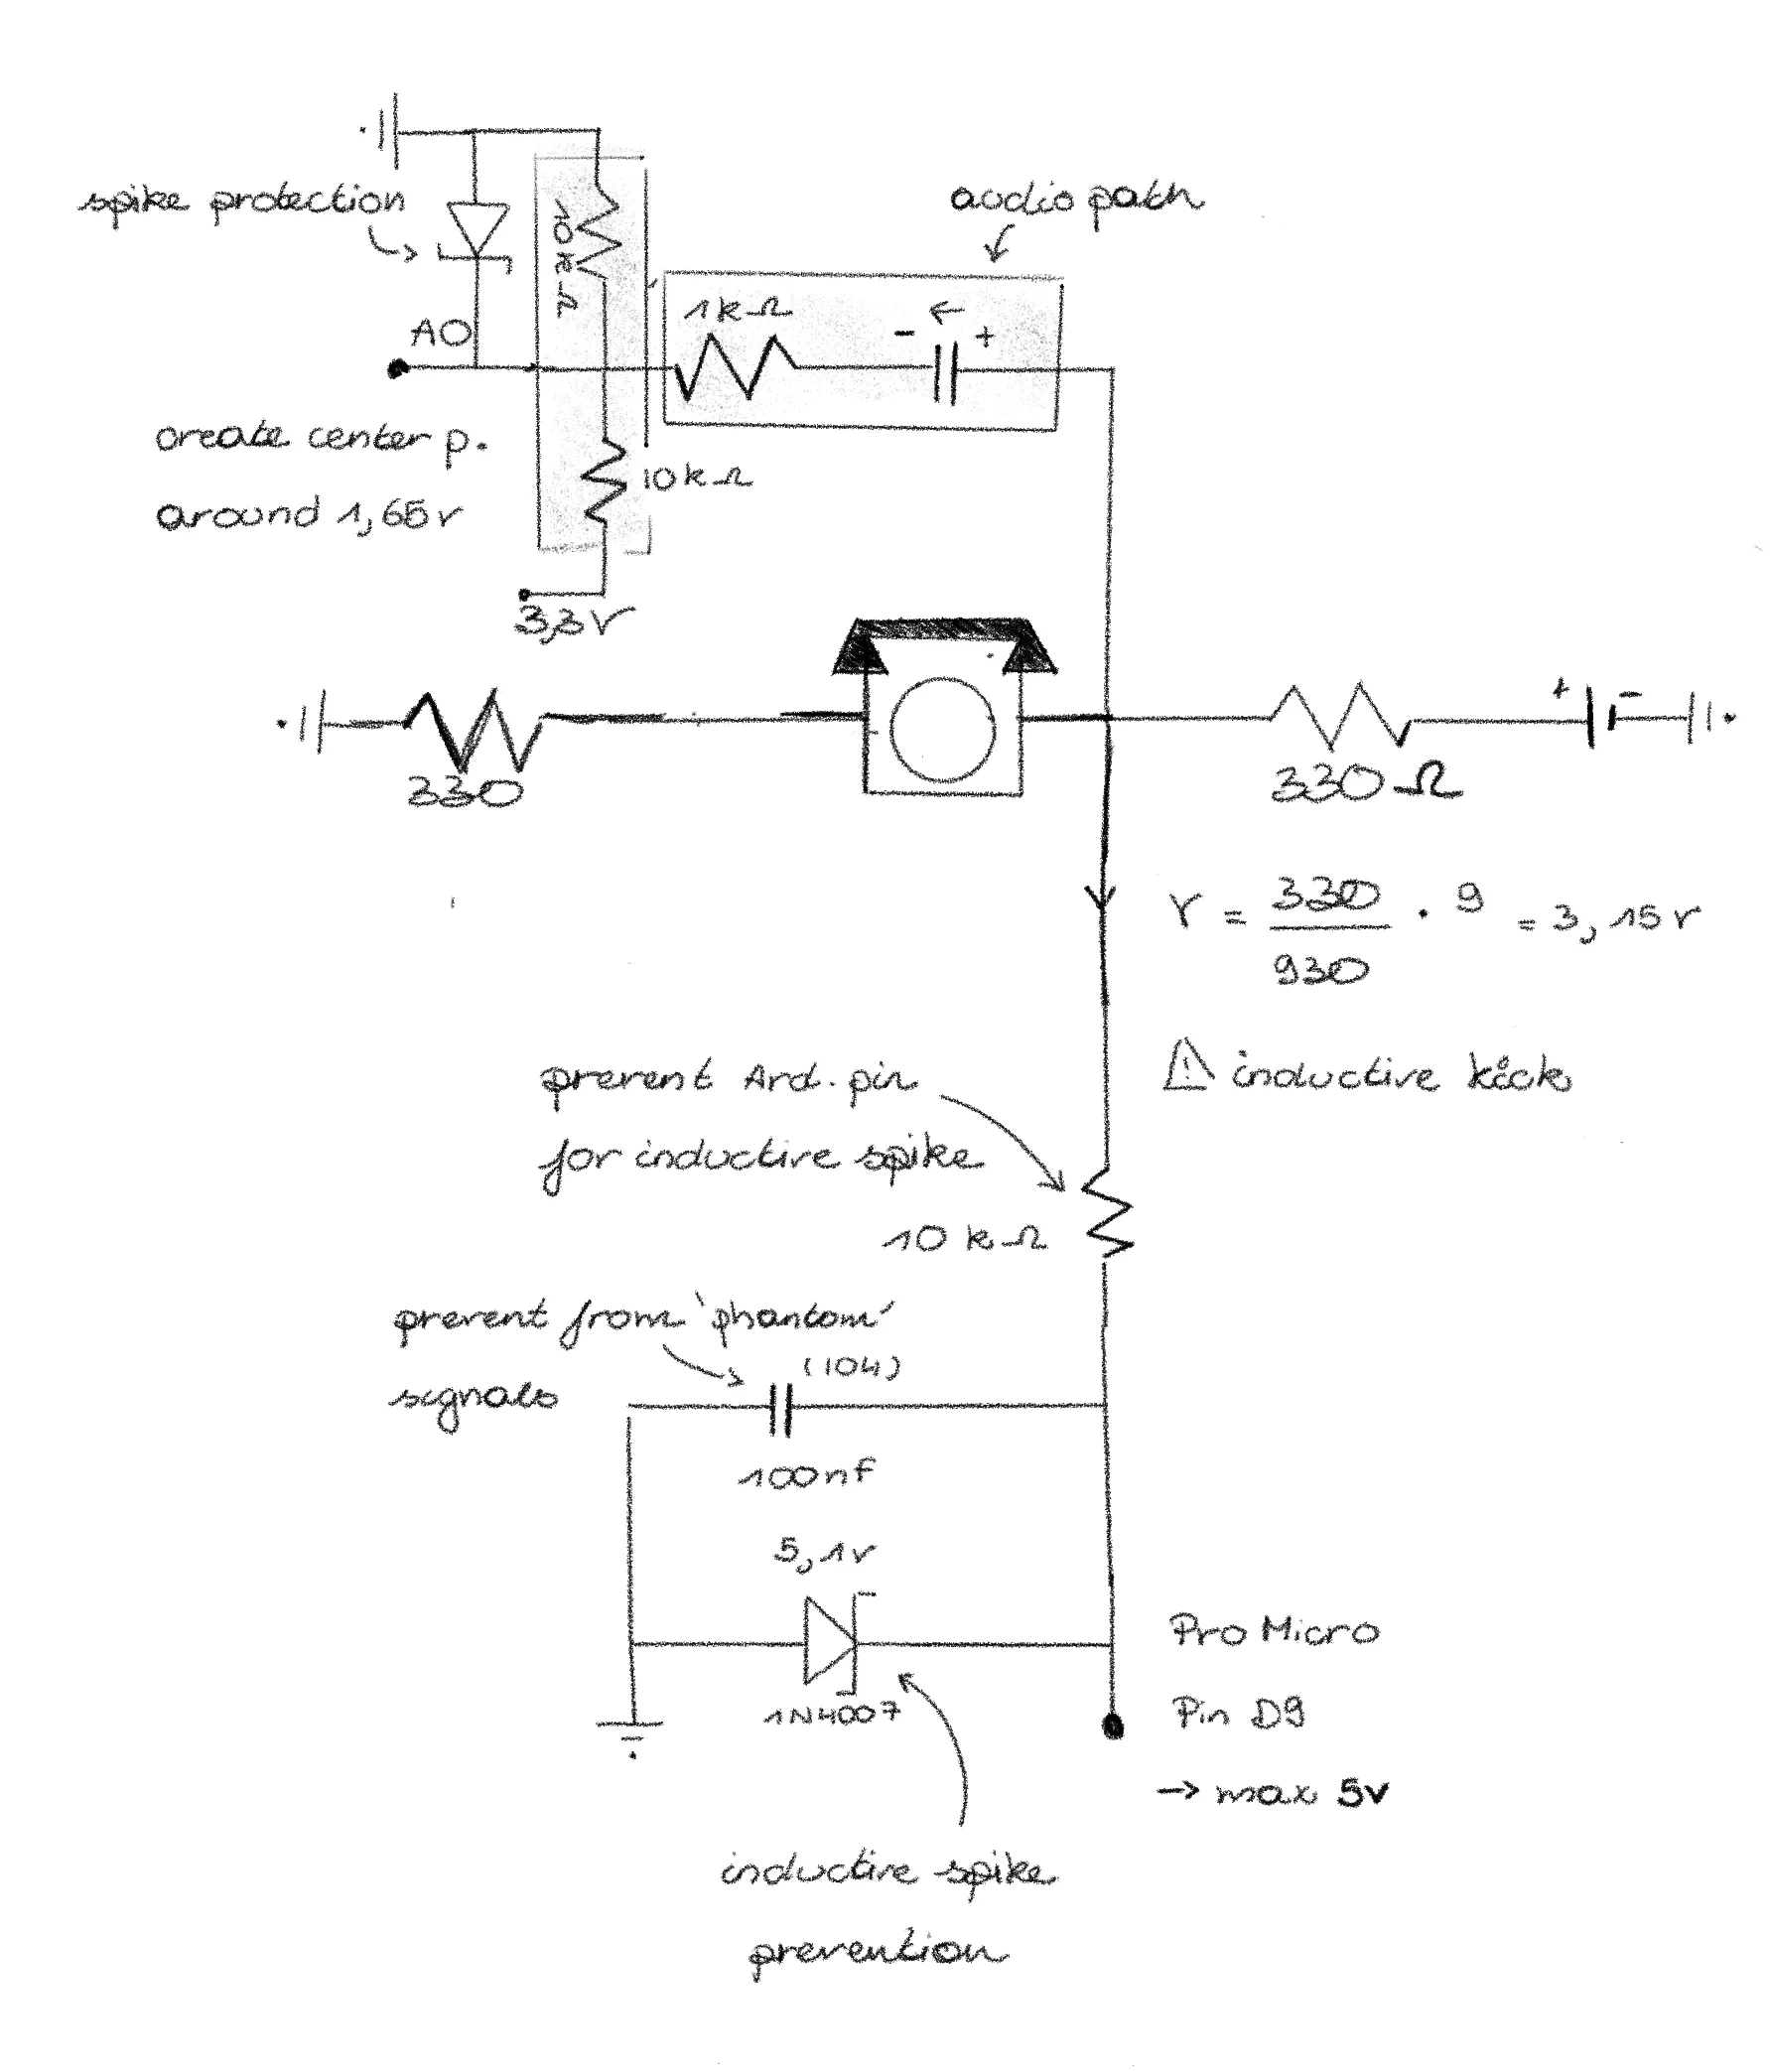 spike protection
audio path
10kΩ
1kΩ
- +
A0
create center p.
around 1,65v
10kΩ
3,3v
+ -
330
330Ω
v = 330/930 · 9 = 3,15v
⚠ inductive kick
prevent Ard. pin
for inductive spike
10 kΩ
prevent from 'phantom'
signals
(104)
100nf
5,1v
1N4007
Pro Micro
Pin D9
→ max 5v
inductive spike
prevention